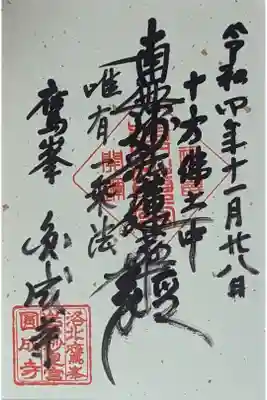 令和四年十一月廿八日
十方佛土中
南無妙法蓮華經
唯有一乗法
鷹峯
圓成寺
洛北鷹峯
岩戸妙見宮
圓成寺